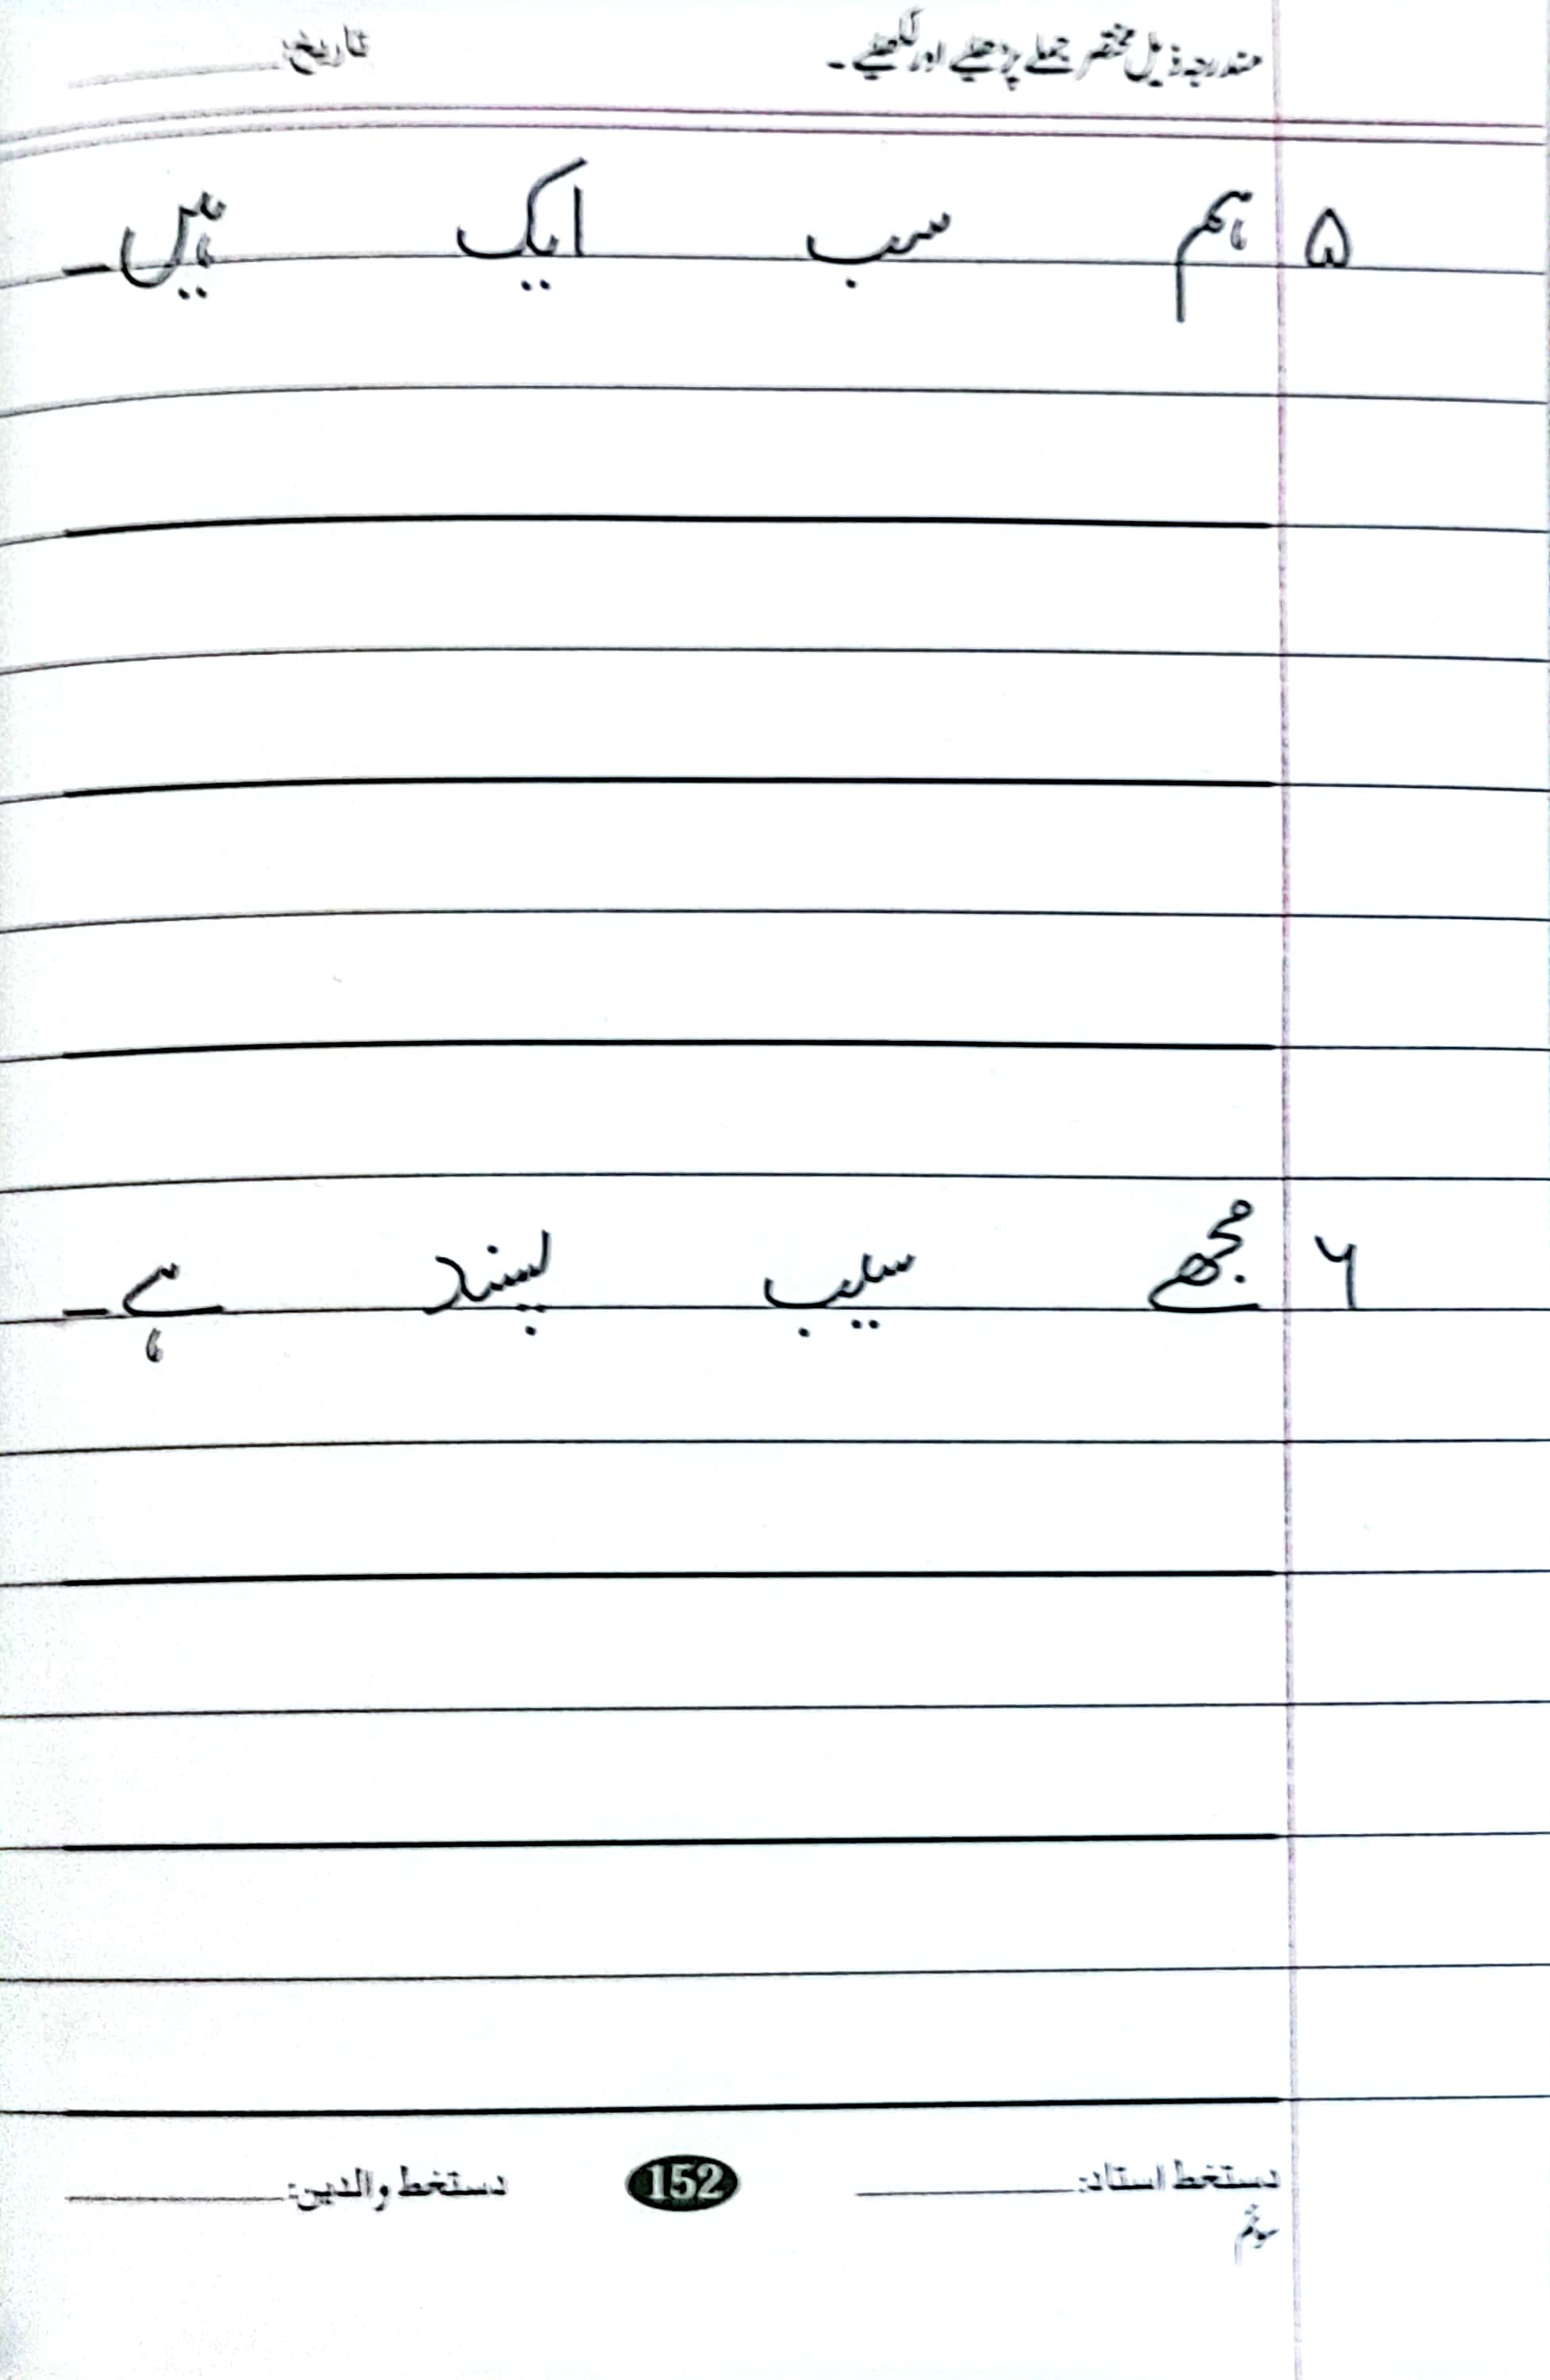 مندرجہ ذیل مختصر جملے پڑھیئے اور لکھیئے۔ تاریخ:
۵ ہم سب ایک ہیں۔
۶ مجھے سیب پسند ہے۔
دستخط استاد: 152 دستخط والدین:
سوئم